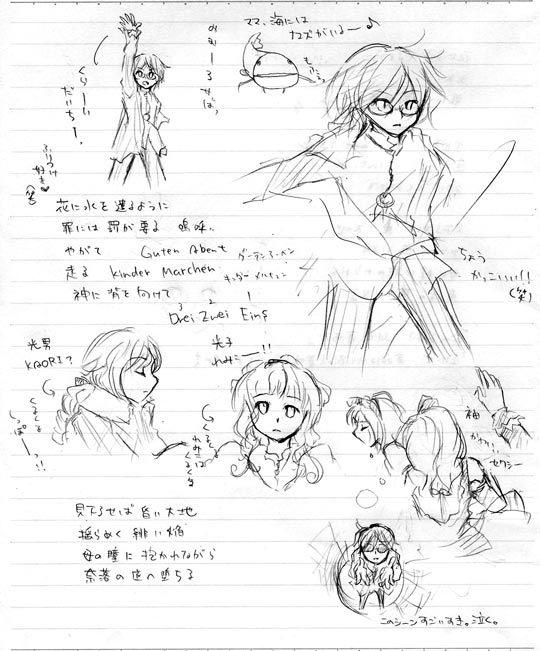 ママ、海には
ナマズがいるー♪
くらーい
だいちー、
ふりつけ
好き♥
(笑)
花に水を遣るように
罪には罰が要る 嗚呼..
やがて Guten Abent グーテンアーベン
走る Kinder Märchen キンダーメルヒェン
神に背を向けて
3 2 1
Drei Zwei Eins
ちょう
かっこいい!!
(笑)
光男
KAORI?
くるくる
しっぽー っ!!
光子
れみこー!!
袖
かわいい
セクシー
見下ろせば 昏い大地
揺らめく 緋い焔
母の瞳に 抱かれながら
奈落の底へ堕ちる
このシーンすごいすき。泣く。